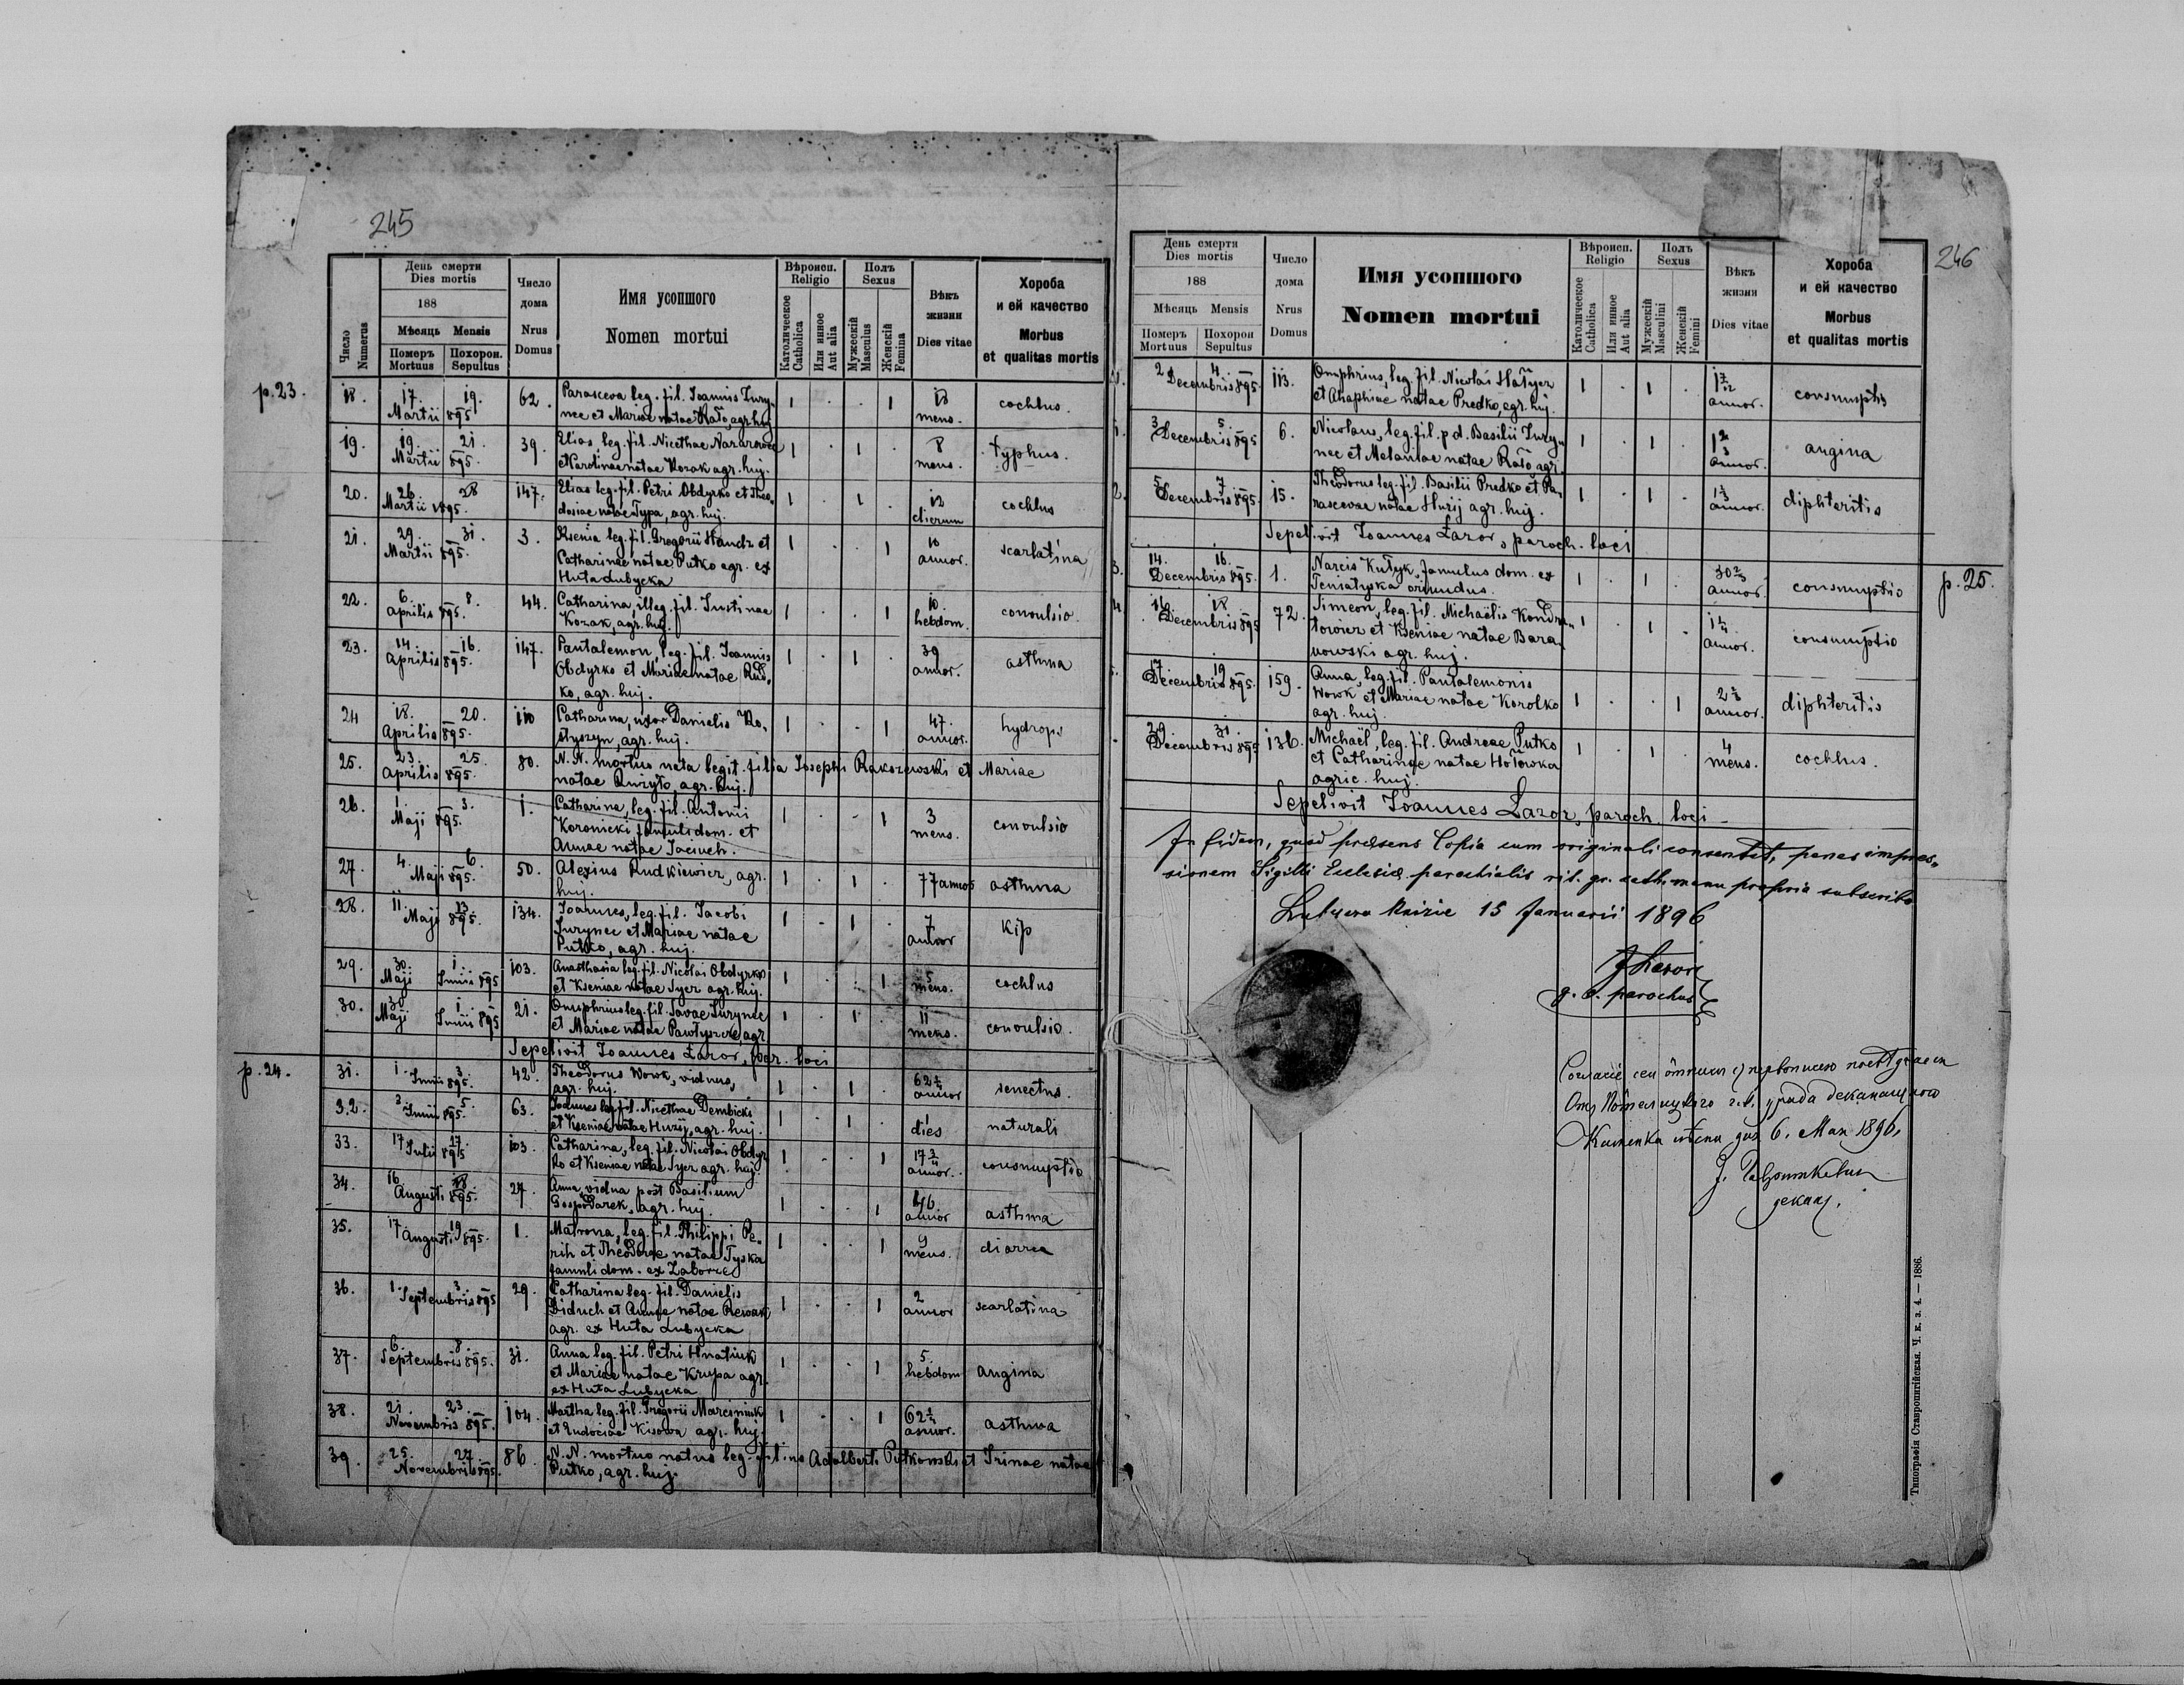 245
День смерти
Dies mortis
188
Мѣсяць Mensis
Число
Numerus
Померъ
Mortuus
Похорон.
Sepultus
Число
дома
Nrus
Domus
Имя усопшого
Nomen mortui
Вѣроисп.
Religio
Католическое
Catholica
Или инное
Aut alia
Полъ
Sexus
Мужескій
Masculus
Женскій
Femina
Вѣкъ
жизни
Dies vitae
Хороба
и ей качество
Morbus
et qualitas mortis
p. 23.
18. 17. 19. 62. Parasceva leg. fil. Joannis Jury- 1 . . 1 18 cochlus.
Martii 895 nec et Mariae natae Rato, agr. huj. mens.
19. 19. 21. 39. Elias, leg. fil. Nicethae Nazarowec 1 . 1 . 8 typhus.
Martii 895. et Karolinae natae Kozak agr. huj. mens.
20. 26. 28 147. Elias leg. fil. Petri Obdyrko et Theo- 1 . 1 . 12 cochlus
Martii 895. dosiae natae Typa, agr. huj. dierum
21. 29. 31. 3. Ksenia leg. fil. Gregorii Handz et 1 . . 1 10 scarlatina
Martii 895. Catharinae natae Putko agr. ex annor.
Huta Lubycka
22. 6. 8. 44. Catharina, illeg. fil. Justinae 1 . . 1 10. convulsio.
Aprilis 895. Kozak, agr. huj. hebdom.
23. 14. 16. 147. Pantalemon, leg. fil. Joannis 1 . 1 . 39 asthma
Aprilis 895. Obdyrko et Mariae natae Rud- annor.
ko, agr. huj.
24 18. 20. 110 Catharina, uxor Danielis Ko- 1 . . 1 47. hydrops
Aprilis 895. styszyn, agr. huj. annor.
25. 23. 25. 80. N. N. mortuo nata legit. filia Josephi Rakszewski et Mariae
Aprilis 895. natae Quizyto, agr. huj.
26. 1. 3. 1. Catharina, leg. fil. Antonii 1 . . 1 3 convulsio
Maji 895. Koronicki famuli dom. et mens.
Annae natae Jaciuch.
27. 4. 6. 50. Alexius Rudkiewicz, agr. 1 . 1 . 77 annor asthma
Maji 895. huj.
28. 11. 13 134. Joannes, leg. fil. Jacobi 1 . 1 . 7 kip
Maji 895. Jurynec et Mariae natae annor
Putko, agr. huj.
29. 30. 1. 103. Anasthasia leg. fil. Nicolai Obdyrko 1 . . 1 5 cochlus
Maji Junii 895 et Kseniae natae Syer agr. huj. mens.
30. 30. 1. 21. Onuphrius leg. fil. Savae Jurynec 1 . 1 . 11 convulsio.
Maji Junii 895 et Mariae natae Pawlyszcze, agr mens.
Sepelivit Joannes Łazor, par. loci
p. 24.
31. 1. 3. 42. Theodorus Wowk, viduus, 1 . 1 . 62½ senectus.
Junii 895. agr. huj. annor
32. 3 5. 63. Joannes leg. fil. Nicethae Dembicki 1 . 1 . 1 naturali
Junii 895. et Kseniae natae Huzij, agr. huj. dies
33. 17 17. 103. Catharina, leg. fil. Nicolai Obdyr 1 . . 1 17 consumptio
Julii 895 ko et Kseniae natae Syer agr. huj. annor.
34. 16 18. 27. Anna, vidua post Basilium 1 . . 1 46 asthma
Augusti 895. Gospodarek, agr. huj. annor
35. 17 19 1. Matrona, leg. fil. Philippi Pe- 1 . . 1 9 diarrea
Augusti 895. rih et Theodorae natae Tyska mens.
famuli dom. ex Zaborze
36. 1. 3. 29. Catharina leg. fil. Danielis 1 . . 1 2 scarlatina
Septembris 895 Diduch et Annae natae Rewak annor
agr. ex Huta Lubycka
37. 6. 8. 31. Anna leg. fil. Petri Hnatiuk 1 . . 1 5. angina
Septembris 895. et Mariae natae Krupa agr. hebdom
ex Huta Lubycka
38. 21. 23. 104. Martha leg. fil. Gregorii Marciniuk 1 . . 1 62½ asthma
Novembris 895. et Eudociae Kisowa agr. huj. annor.
39. 25. 27. 86. N. N. mortuo natus leg. filius Adalberti Putkowski et Irinae natae
Novembris 895. Putko, agr. huj.
246
День смерти
Dies mortis
188
Мѣсяць Mensis
Померъ
Mortuus
Похорон
Sepultus
Число
дома
Nrus
Domus
Имя усопшого
Nomen mortui
Вѣроисп.
Religio
Католическое
Catholica
Или инное
Aut alia
Полъ
Sexus
Мужескій
Masculini
Женскій
Femini
Вѣкъ
жизни
Dies vitae
Хороба
и ей качество
Morbus
et qualitas mortis
2 4. 113. Onuphrius, leg. fil. Nicolai Hałyez 1 . 1 . consumptio
Decembris 895. et Ahaphiae natae Predko, agr. huj. annor.
3 5. 6. Nicolaus, leg. fil. p. d. Basilii Jury- 1 . 1 . angina
Decembris 895 nec et Melaniae natae Rato agr. annor.
5 7 15. Theodorus leg. fil. Basilii Predko et Pa- 1 . 1 . diphteritis
Decembris 895. rascevae natae Hurij agr. huj. annor.
Sepelivit Joannes Łazor, paroch. loci
p. 25.
14. 16. 1. Narcis Kułyk, famulus dom. ex 1 . 1 . 30⅔ consumptio
Decembris 895. Teniatyska oriundus. annor.
16. 18 72. Simeon, leg. fil. Michaëlis Kondra- 1 . 1 . 1¼ consumptio
Decembris 895 towicz et Kseniae natae Bara- annor.
nowski agr. huj.
17 19 159. Anna, leg. fil. Pantalemonis 1 . . 1 diphteritis
Decembris 895. Wowk et Mariae natae Korolko annor.
agr. huj.
29 31. 136. Michaël, leg. fil. Andreae Putko 1 . 1 . 4 cochlus.
Decembris 895 et Catharinae natae Hołowka mens.
agric. huj.
Sepelivit Joannes Łazor, paroch. loci
In fidem, quod praesens Copia cum originali consentit, penes impres-
sionem Sigilli Ecclesiae parochialis rit. gr. cath. manu propria subscribo
Lubycza Kniazie 15 Januarii 1896
J Łazor
g. c. parochus
6. Мая 1896.
декан.
Типографія Ставропигійская. Ч. к. з. 4. — 1886.